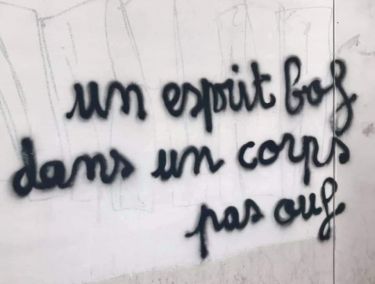 un esprit bof
dans un corps
pas ouf.